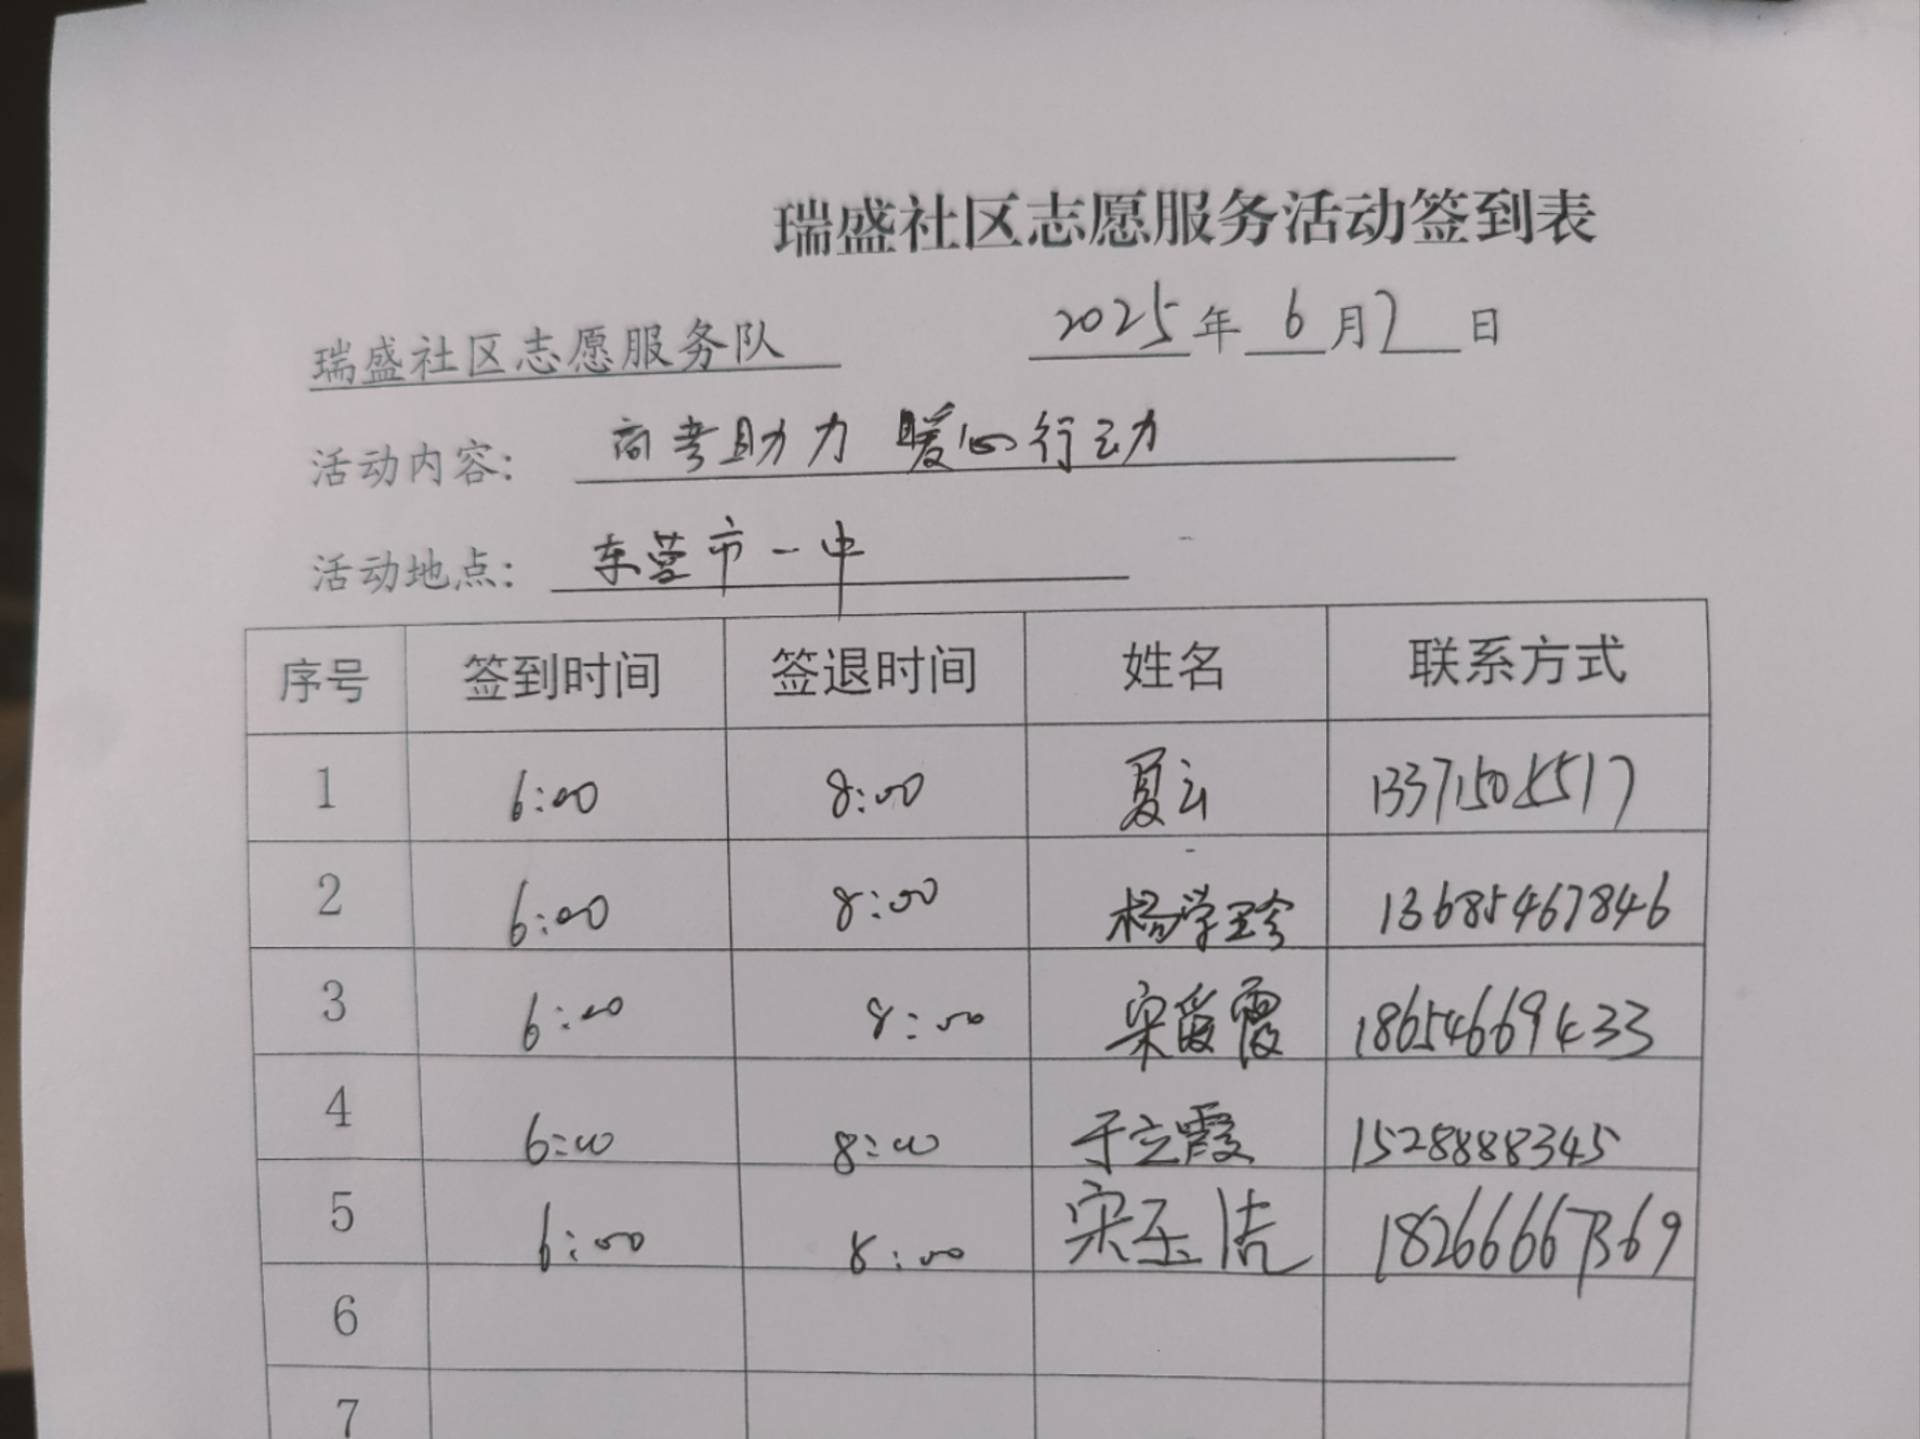 瑞盛社区志愿服务活动签到表
瑞盛社区志愿服务队 2025年 6 月7 日
活动内容： 高考助力 暖心行动
活动地点： 东营市一中
序号 签到时间 签退时间 姓名 联系方式
1 6:00 8:00 夏云 13371505517
2 6:00 8:00 杨学珍 13685467846
3 6:00 8:00 宋霞 18654669433
4 6:00 8:00 于立霞 15288888345
5 6:00 8:00 宋玉洁 18266667369
6
7